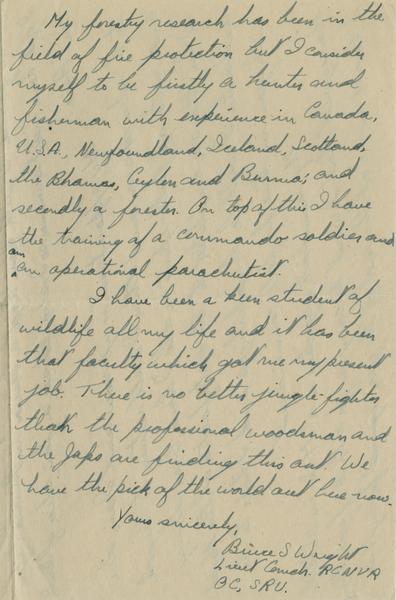 My forestry research has been in the
field of fire protection but I consider
myself to be firstly a hunter and
fisherman with experience in Canada,
U.S.A., Newfoundland, Iceland, Scotland,
the Bhamas, Ceylon and Burma; and
secondly a forester. On top of this I have
the training of a commando soldier and
am
an operational parachutist.
I have been a keen student of
wildlife all my life and it has been
that faculty which got me my present
job. There is no better jungle-fighter
than the professional woodsman and
the Japs are finding this out. We
have the pick of the world out here now.
Yours sincerely,
Bruce S Wright
Lieut Comdr. RCNVR
OC, SRU.